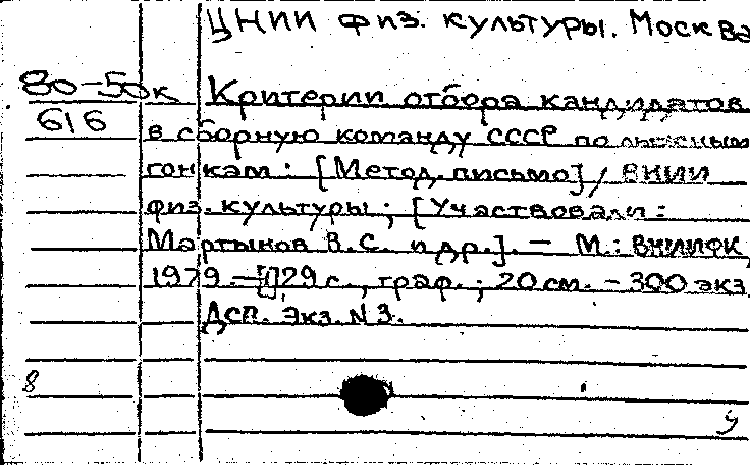 ЦНИИ физ. культуры. Москва
80-50к Критерии отбора кандидатов
616 в сборную команду СССР по лыжным
гонкам: [Метод. письмо] / ВНИИ
физ. культуры; [Участвовали:
Мартынов В.С. и др.]. — М.: ВНИИФК,
1979. — 29 с., граф.; 20 см. — 300 экз
Дсп. Экз. N 3.
8